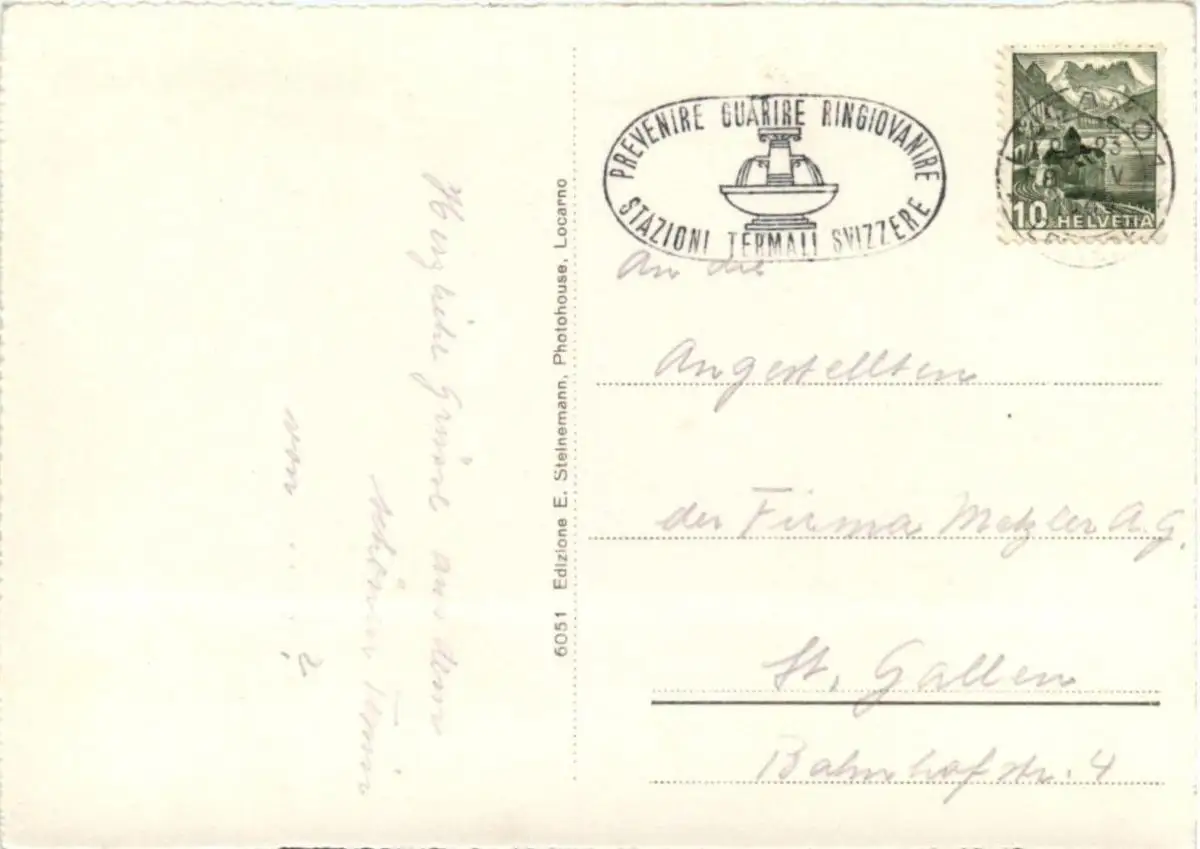 Herzliche Grüsse aus dem
schönen Tessin
von . . . ?
6051 Edizione E. Steinemann, Photohouse, Locarno
PREVENIRE GUARIRE RINGIOVANIRE
STAZIONI TERMALI SVIZZERE
10 HELVETIA
An die
Angestellten
der Firma Metzler A.G.
St. Gallen
Bahnhofstr. 4